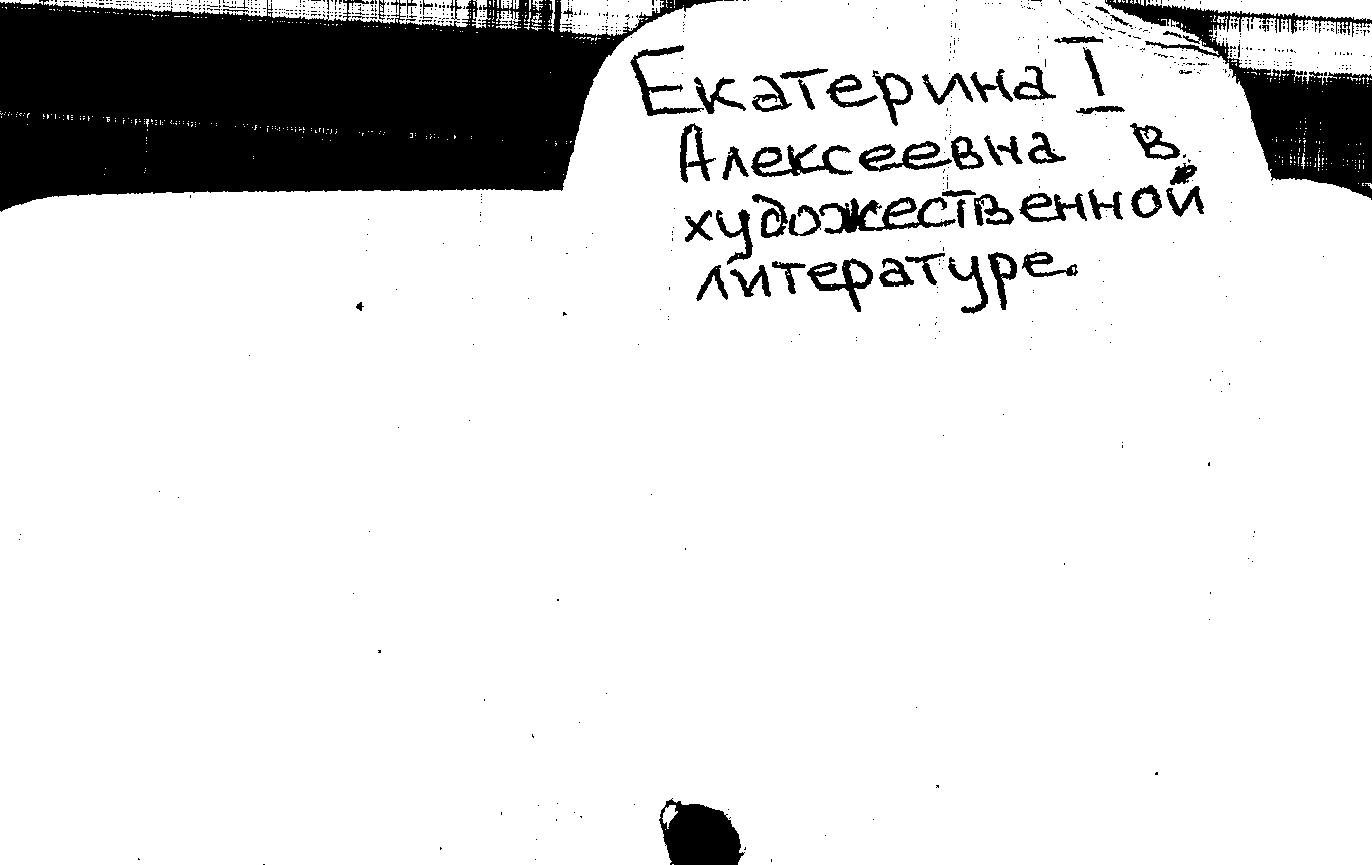 Екатерина I
Алексеевна в
художественной
литературе.